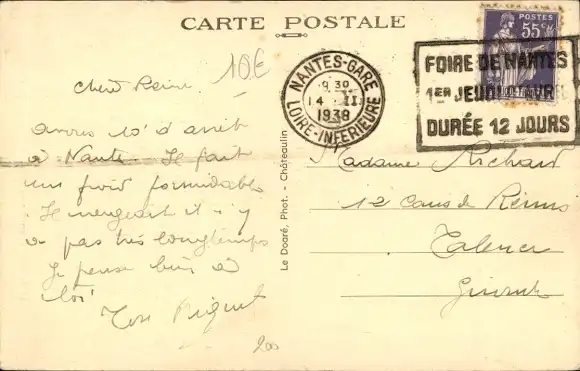 CARTE POSTALE
10€
NANTES-GARE
9 30
14 · II
1938
LOIRE-INFERIEURE
POSTES
55c
FOIRE DE NANTES
1ER JEUDI AVRIL
DURÉE 12 JOURS
avons 10' d'arrêt
à Nante. Je fait
un froid formidable
Je neigeait il y
a pas très longtemps
Je pense bien à
toi
Le Doaré, Phot. - Châteaulin
Madame Richard
12 Cours de Reims
Talence
Gironde
200